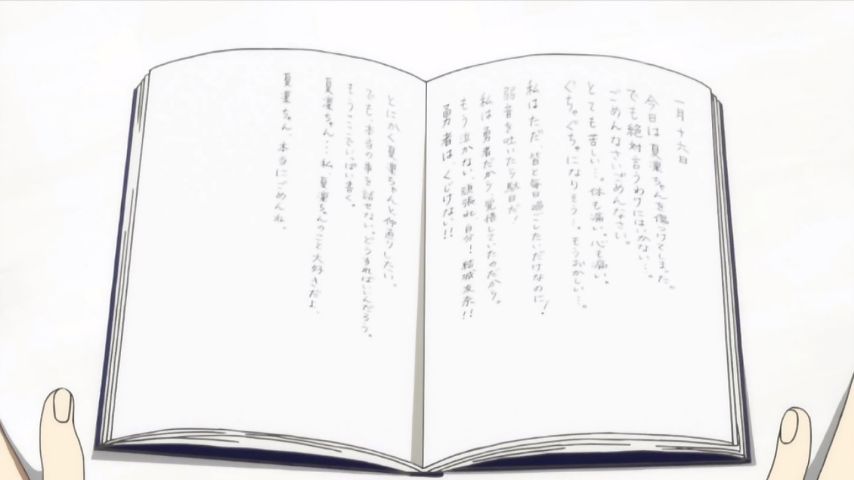 一月十六日
今日は夏凜ちゃんを傷つけてしまった。
でも絶対言うわけにはいかない…。
ごめんなさいごめんなさい。
とても苦しい…。体も痛い。心も痛い。
ぐちゃぐちゃになりそう…。もうおかしい…。
私はただ、皆と毎日過ごしたいだけなのに！
弱音を吐いたら駄目だ！
私は勇者だから。覚悟していたのだから。
もう泣かない。頑張れ自分！結城友奈!!
勇者は、くじけない!!
とにかく夏凜ちゃんと仲直りしたい。
でも、本当の事を話せない。どうすればいいんだろう。
もうここでいっぱい書く。
夏凜ちゃん…私、夏凜ちゃんのこと大好きだよ。
夏凜ちゃん、本当にごめんね。